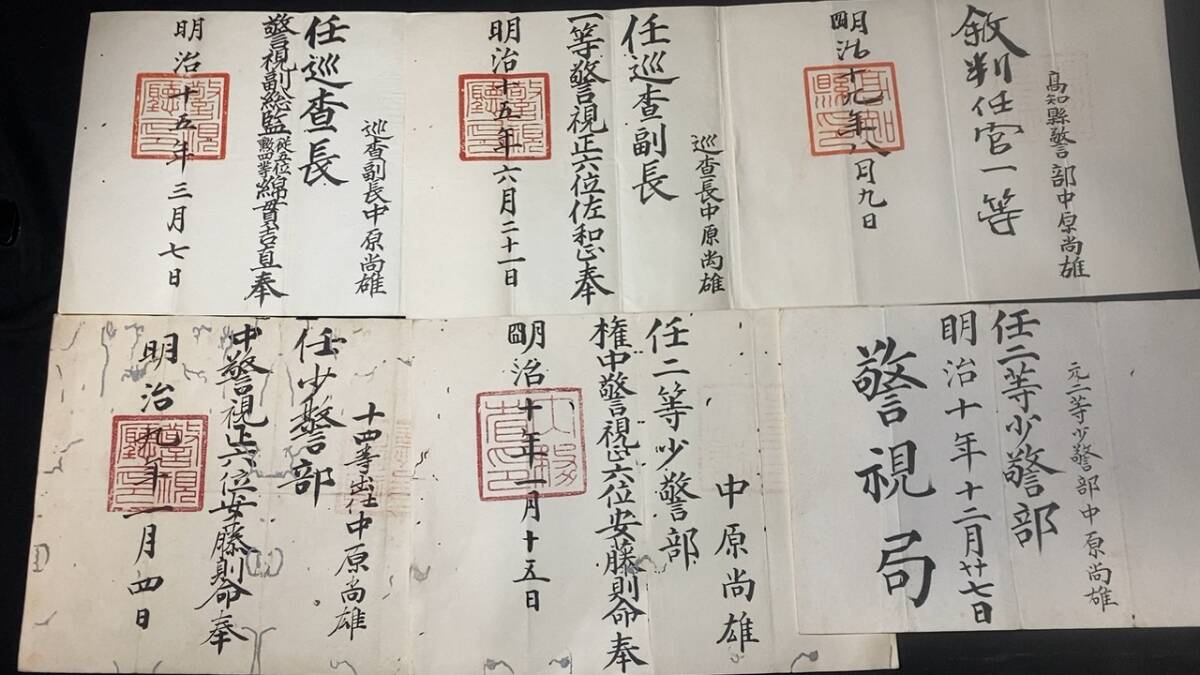 高知縣警部中原尚雄
敘判任官一等
明治十九年八月九日
高知縣印
巡査長中原尚雄
任巡査副長
一等警視正六位佐和正奉
明治十五年六月二十一日
警視廳印
巡査副長中原尚雄
任巡査長
警視副總監従五位勲四等綿貫吉直奉
明治十五年三月七日
警視廳印
元二等少警部中原尚雄
任二等少警部
明治十年十二月廿七日
警視局
中原尚雄
任二等少警部
権中警視正六位安藤則命奉
明治十年一月十五日
内務省印
十四等出仕中原尚雄
任少警部
中警視正六位安藤則命奉
明治九年一月四日
警視廳印